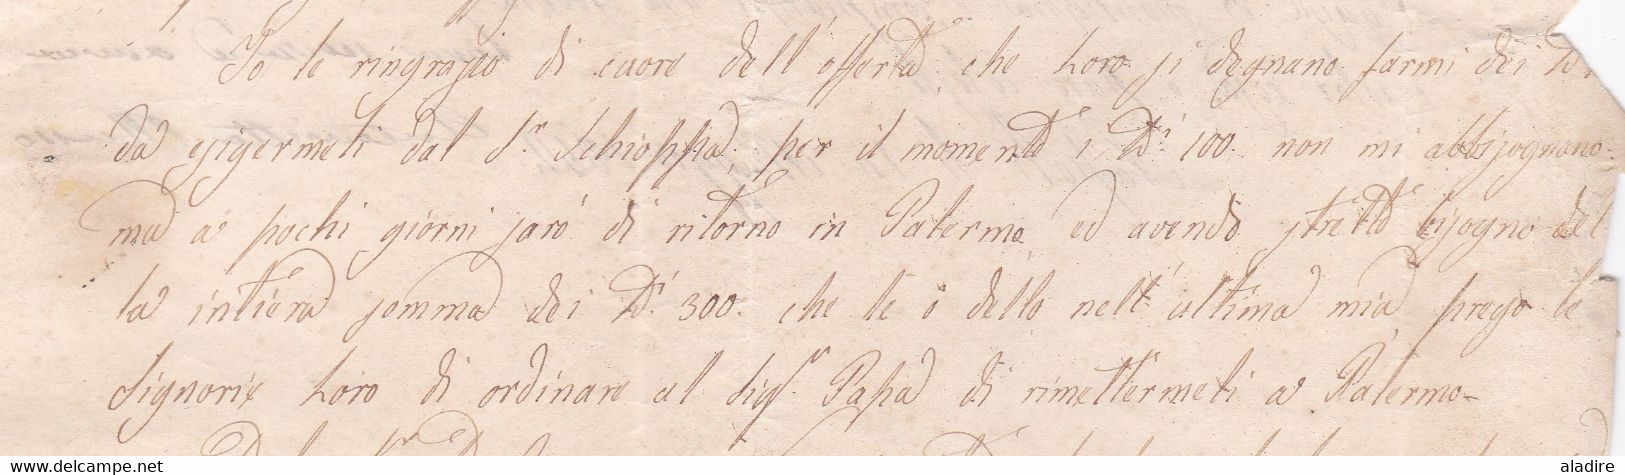 Io le ringrazio di cuore dell'offerta che Loro si degnano farmi dei D.i
da esigermeli dal S.r Schioppa per il momento i D.i 100. non mi abbisognano.
ma a pochi giorni sarò di ritorno in Palermo ed avendo stretto bisogno del
la intiera somma dei D.i 300. che le ò detto nell'ultima mia prego le
Signorie Loro di ordinare al Sig.r Papa di rimettermeli a Palermo-
www.delcampe.net
aladire